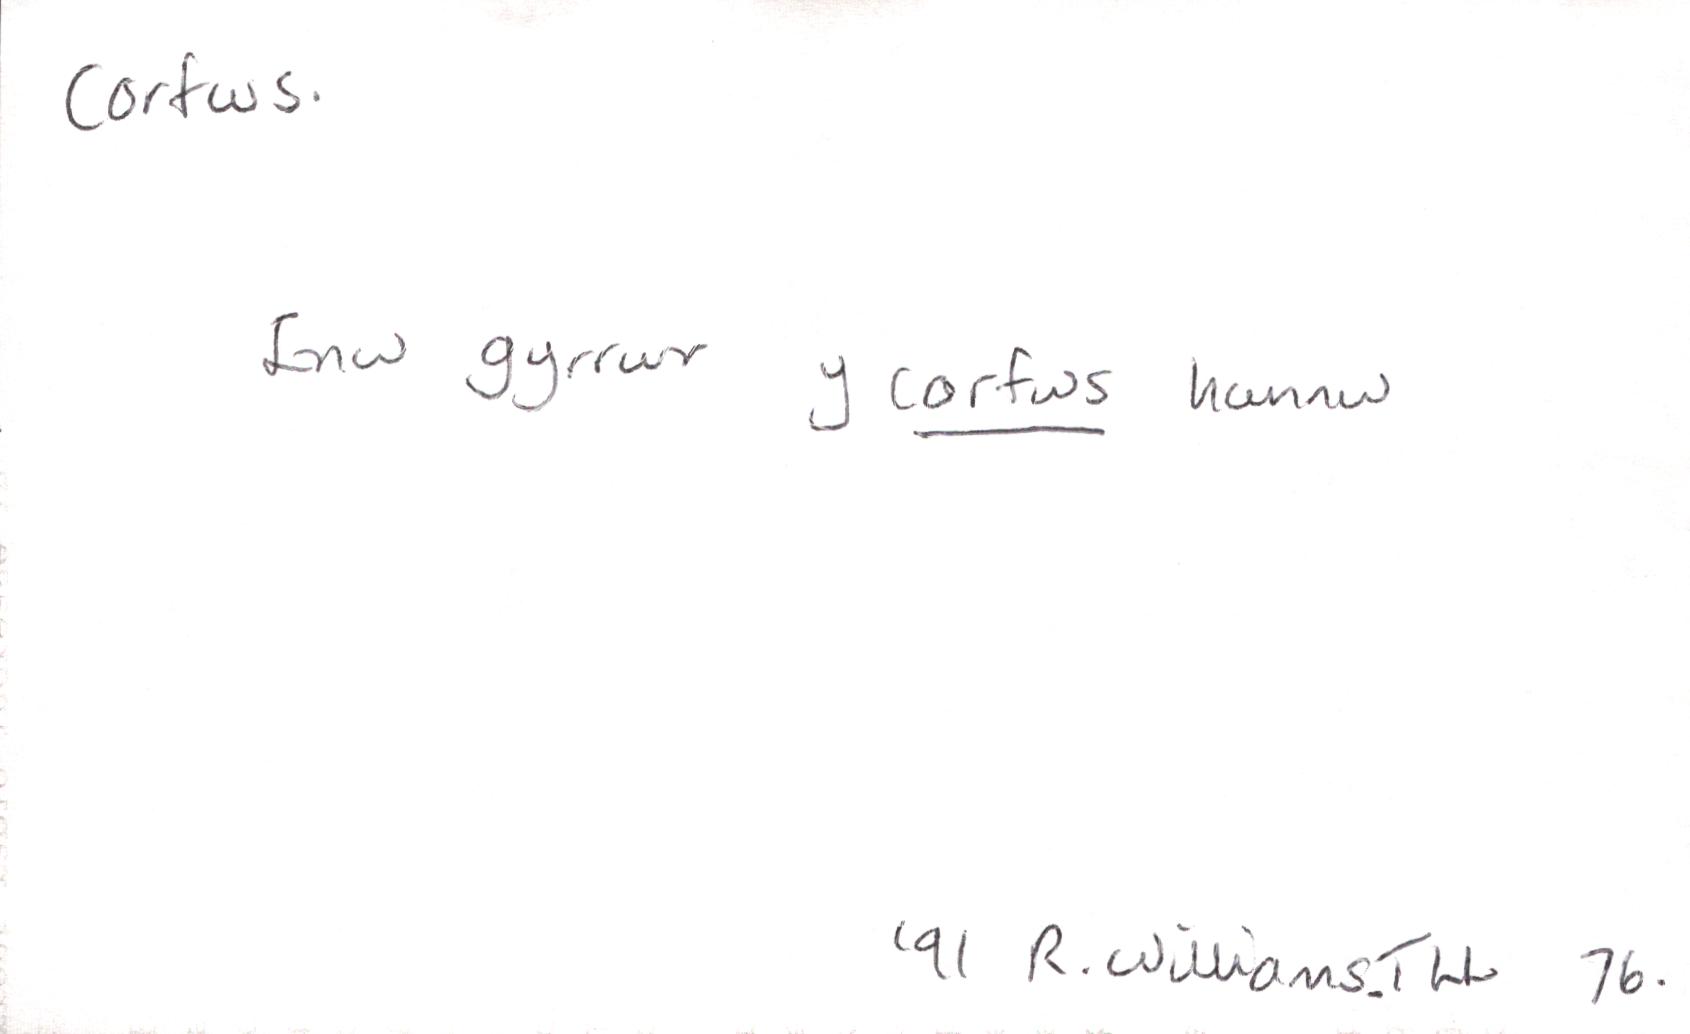 Corfws.
Enw gyrrwr y corfws hannw
'91 R. Williams. TLL 76.